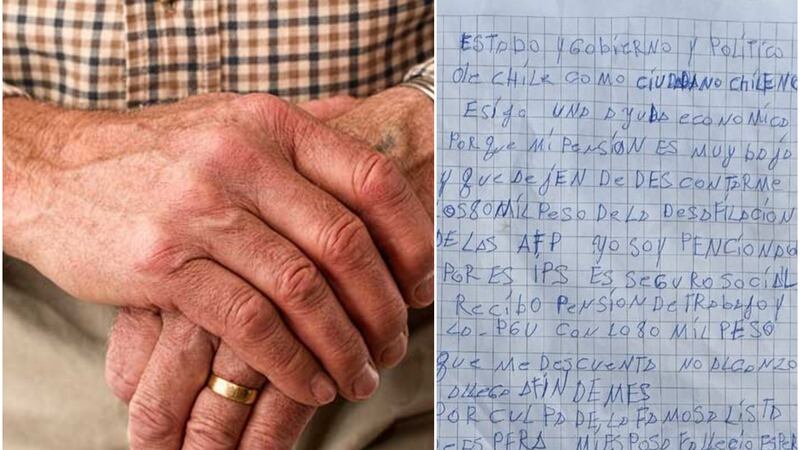 ESTADO y GobiERNO y POLíTICO
de CHILE COMO CIUDADANO CHILENO
ESijo UNA AyUDA ECONOMICA
PORQUE MI PENSION ES MUY bAJO
y QUE DEJEN DE DESCONTARME
LOS 80 MIL PESO DE LA DESAFILACION
DE LAS AFP YO SOY PENCIONADO
POR ES IPS ES SEGURO SOCIAL
RECIbO PENSION DE TRABAJO y
LA - PGU CON LO 80 MIL PESO
QUE ME DESCUENTA NO ALCANZO
A LLEGO A FIN DE MES
POR CULPA DE LA FAMOSA LISTA
ESPERA MI ESPOSA FALLECIO